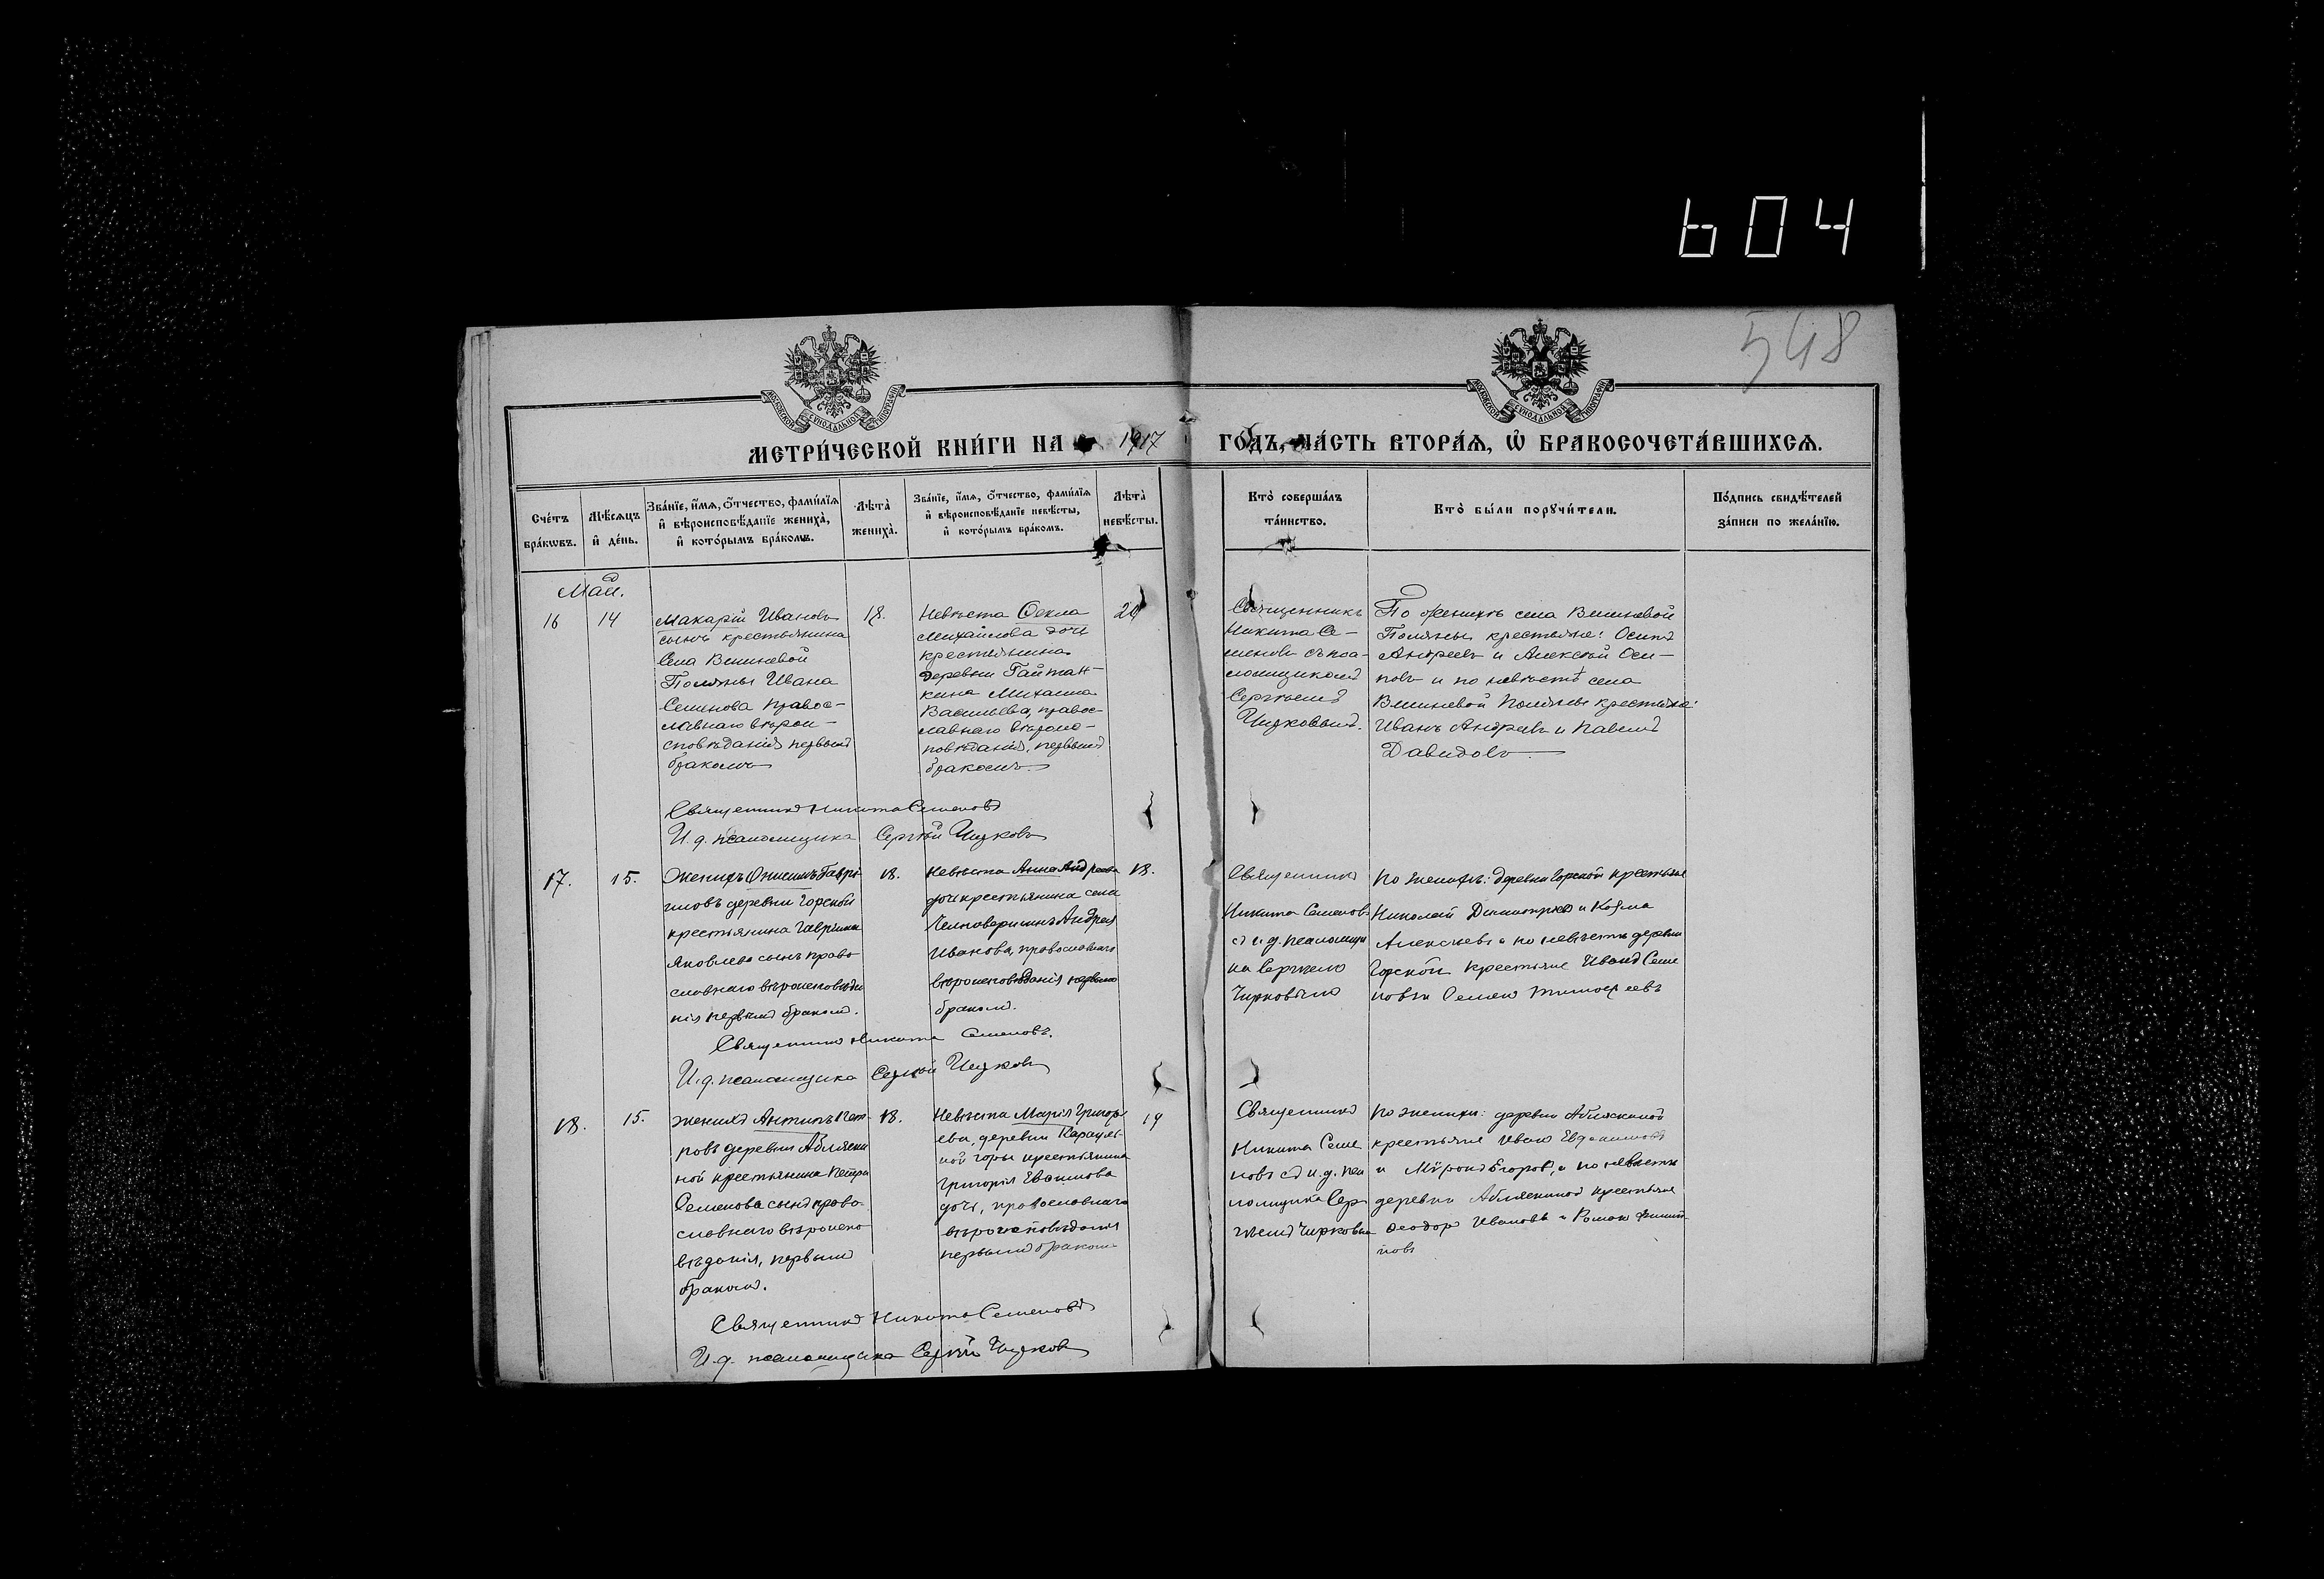 604
548
МОСКОВСКОЙ СУНОДАЛЬНОЙ ТИПОГРАФІИ
МОСКОВСКОЙ СУНОДАЛЬНОЙ ТИПОГРАФІИ
МЕТРИ́ЧЕСКОЙ КНИ́ГИ НА 1917 ГО́ДЪ, ЧА́СТЬ ВТОРА́Ѧ, Ѡ҆ БРАКОСОЧЕТА́ВШИХСѦ.
Сче́тъ
бра́кѡвъ.
Мѣ́сѧцъ
и҆ де́нь.
Зва́нїе, и҆́мѧ, ѻ҆́тчество, фами́лїѧ
и҆ вѣроисповѣ́данїе жениха̀,
и҆ кото́рымъ бра́комъ.
Лѣта̀
жениха̀.
Зва́нїе, и҆́мѧ, ѻ҆́тчество, фами́лїѧ
и҆ вѣроисповѣ́данїе невѣ́сты,
и҆ кото́рымъ бра́комъ.
Лѣта̀
невѣ́сты.
Кто̀ соверша́лъ
та́инство.
Кто̀ бы́ли порꙋчи́тели.
По́дпись свидѣ́телей
за́писи по жела́нїю.
Май.
16
14
Макарій Ивановъ
сынъ крестьянина
села Вишневой
Поляны Ивана
Семенова правос-
лавнаго вѣрои-
сповѣданія первымъ
бракомъ
18.
Невѣста Ѳекла
Михайлова дочь
крестьянина
деревни Гайтан-
кина Михаила
Васильева, правос-
лавнаго вѣроис-
повѣданія, первымъ
бракомъ.
20
Священникъ
Никита Се-
меновъ съ пса-
ломщикомъ
Сергѣемъ
Чирковымъ.
По женихѣ села Вишневой
Поляны крестьяне: Осипъ
Андреевъ и Алексѣй Оси-
повъ и по невѣстѣ села
Вишневой Поляны крестьяне:
Иванъ Андреевъ и Павелъ
Давидовъ
Священникъ Никита Семеновъ
И. д. псаломщика Сергѣй Чирковъ
17.
15.
Женихъ Онисимъ Гаврі-
иловъ деревни Горской
крестьянина Гавріила
Яковлева сынъ право-
славнаго вѣроисповѣда
нія первымъ бракомъ.
18.
Невѣста Анна Андреева
дочь крестьянина села
Андрея
Иванова, православнаго
вѣроисповѣданія первымъ
бракомъ.
18.
Священникъ
Никита Семеновъ
съ и. д. псаломщи
ка Сергѣемъ
Чирковымъ
По женихѣ: деревни Горской крестьяне
Николай Димитріевъ и Козма
Алексѣевъ а по невѣстѣ деревни
Горской крестьяне Иванъ Семе
новъ и Семенъ Тимоѳеевъ
Священникъ Никита Семеновъ.
И. д. псаломщика Сергѣй Чирковъ
18.
15.
Женихъ Антипъ Пет-
ровъ деревни Аблязки
ной крестьянина Петра
Семенова сынъ право-
славнаго вѣроиспо-
вѣданія, первымъ
бракомъ.
18.
Невѣста Марія Григорь
ева, деревни Карауль-
ной горы крестьянина
Григорія Евдокимова
дочь, православнаго
вѣроисповѣданія
первымъ бракомъ
19
Священникъ
Никита Семе
новъ съ и. д. пса
ломщика Сер-
гѣемъ Чирковымъ
По женихѣ: деревни Аблязкиной
крестьяне Иванъ Евдокимовъ
и Мѵронъ Егоровъ, а по невѣстѣ
деревни Аблязкиной крестьяне
Ѳеодоръ Ивановъ и Романъ Филип-
повъ
Священникъ Никита Семеновъ
И. д. псаломщика Сергѣй Чирковъ